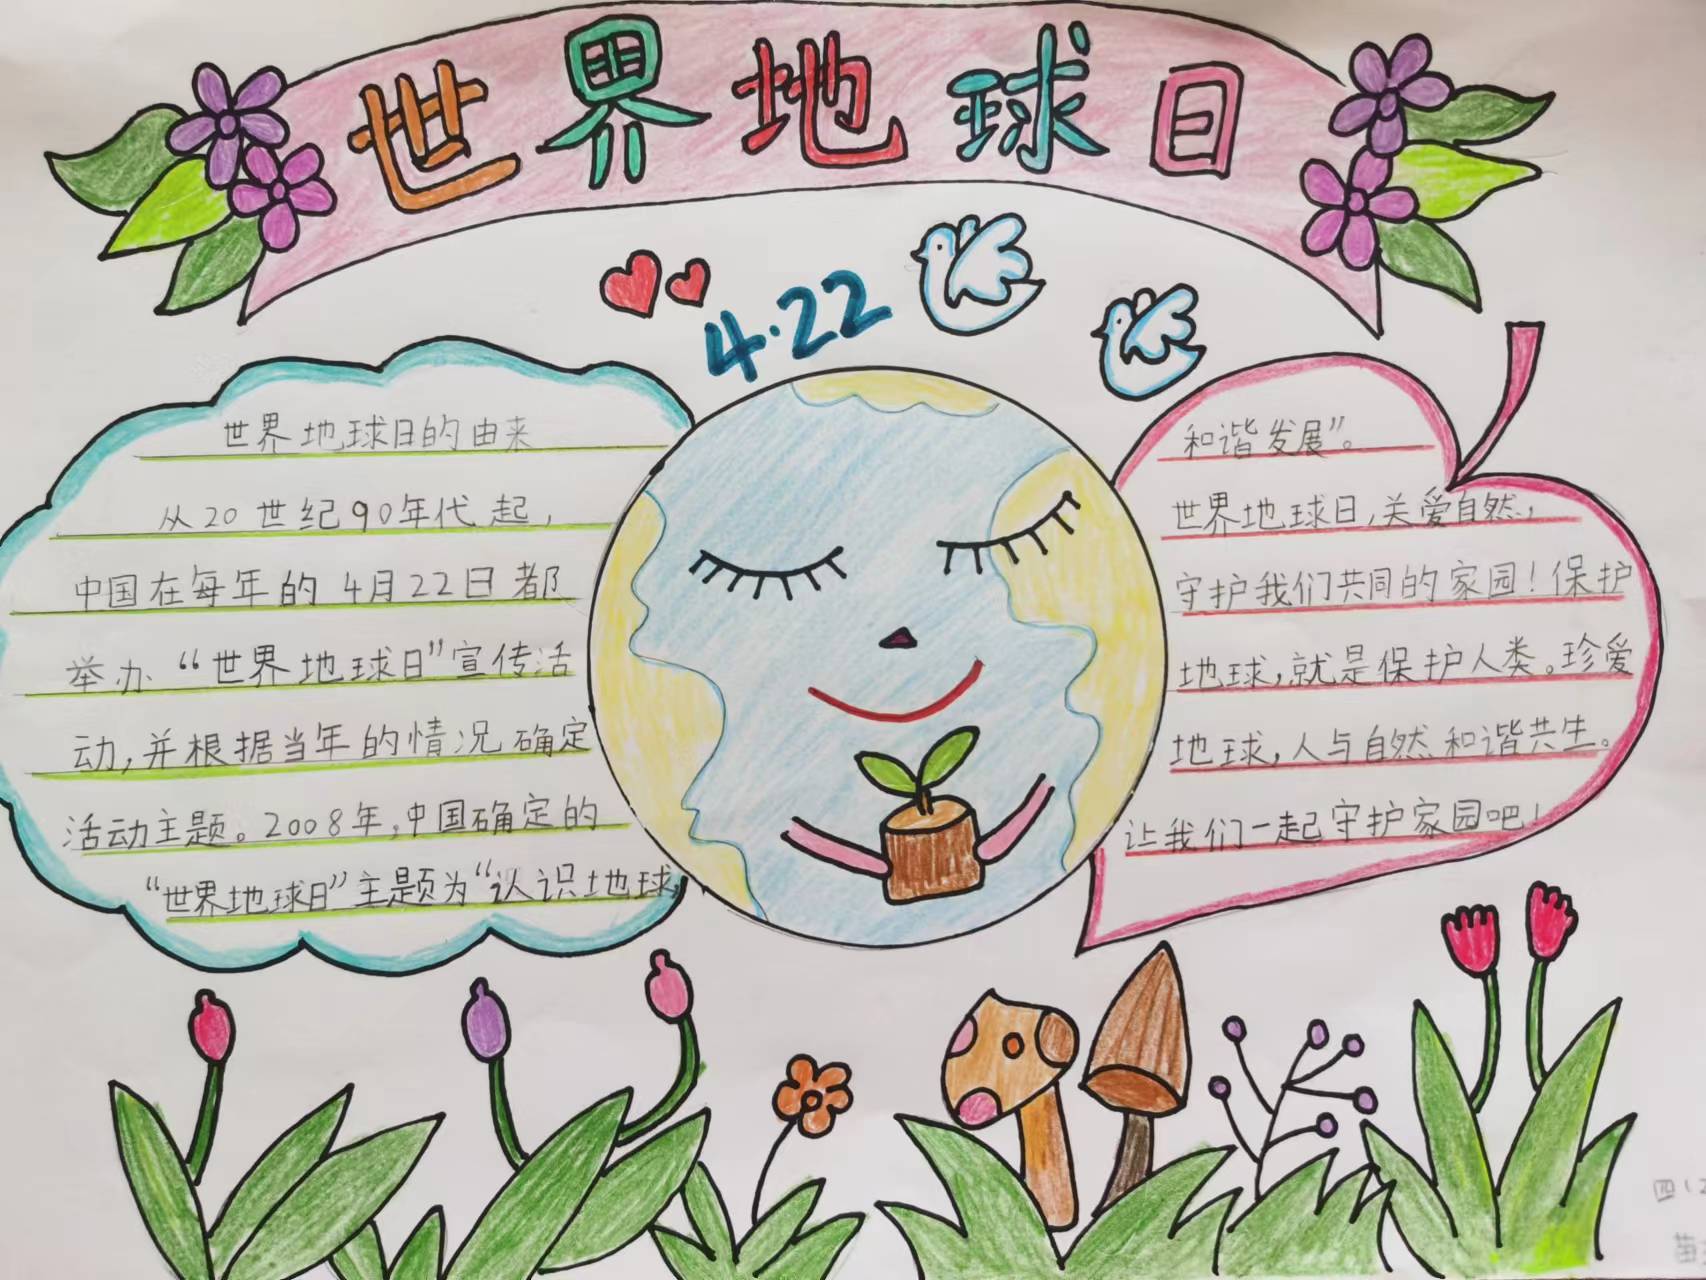 世界地球日
4.22
世界地球日的由来
从20世纪90年代起，
中国在每年的4月22日都
举办“世界地球日”宣传活
动，并根据当年的情况确定
活动主题。2008年，中国确定的
“世界地球日”主题为“认识地球，
和谐发展”。
世界地球日，关爱自然，
守护我们共同的家园！保护
地球，就是保护人类。珍爱
地球，人与自然和谐共生。
让我们一起守护家园吧！
四(2